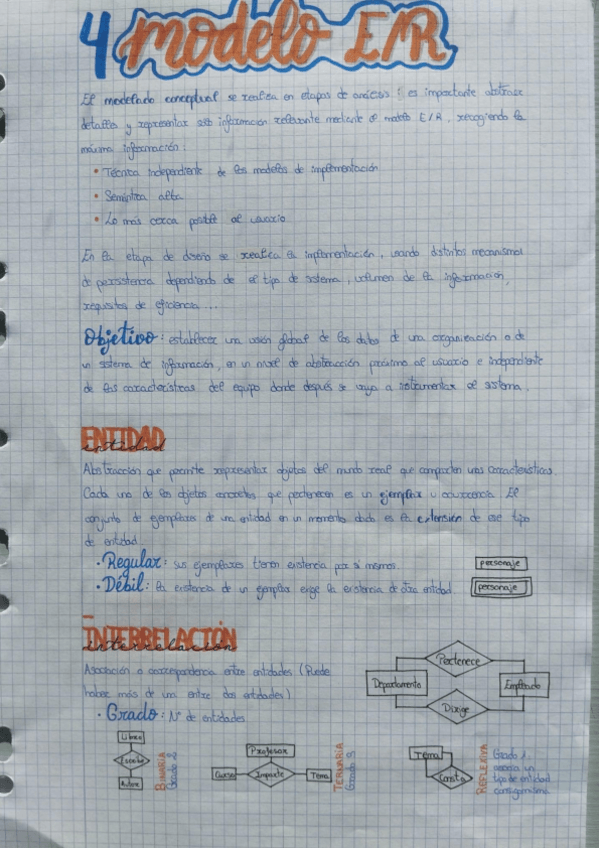 4 modelo E/R
El modelado conceptual se realiza en etapas de análisis: es importante abstraer
detalles y representar esta información relevante mediante el modelo E/R, recogiendo la
máxima información:
• Técnica independiente de los modelos de implementación
• Semántica alta
• Lo más cerca posible al usuario
En la etapa de diseño se realiza la implementación, usando distintos mecanismos
de persistencia dependiendo de el tipo de sistema, volumen de la información,
requisitos de eficiencia...
Objetivo: establecer una visión global de los datos de una organización o de
un sistema de información, en un nivel de abstracción próximo al usuario e independiente
de las características del equipo donde después se vaya a instrumentar el sistema.
ENTIDAD
entidad
Abstracción que permite representar objetos del mundo real que comparten unas características.
Cada uno de los objetos concretos que pertenecen es un ejemplar u ocurrencia. El
conjunto de ejemplares de una entidad en un momento dado es la extensión de ese tipo
de entidad.
• Regular: sus ejemplares tienen existencia por sí mismos.
personaje
• Débil: la existencia de un ejemplar exige la existencia de otra entidad.
personaje
INTERRELACIÓN
interrelación
Asociación o correspondencia entre entidades (Puede
haber más de una entre dos entidades)
• Grado: Nº de entidades
Pertenece
Departamento
Empleado
Dirige
Libro
Escribe
Autor
BINARIA
Grado 2
Profesor
Curso
Imparte
Tema
TERNARIA
Grado 3
Tema
Consta
REFLEXIVA
Grado 1.
asocia un
tipo de entidad
consigo misma.